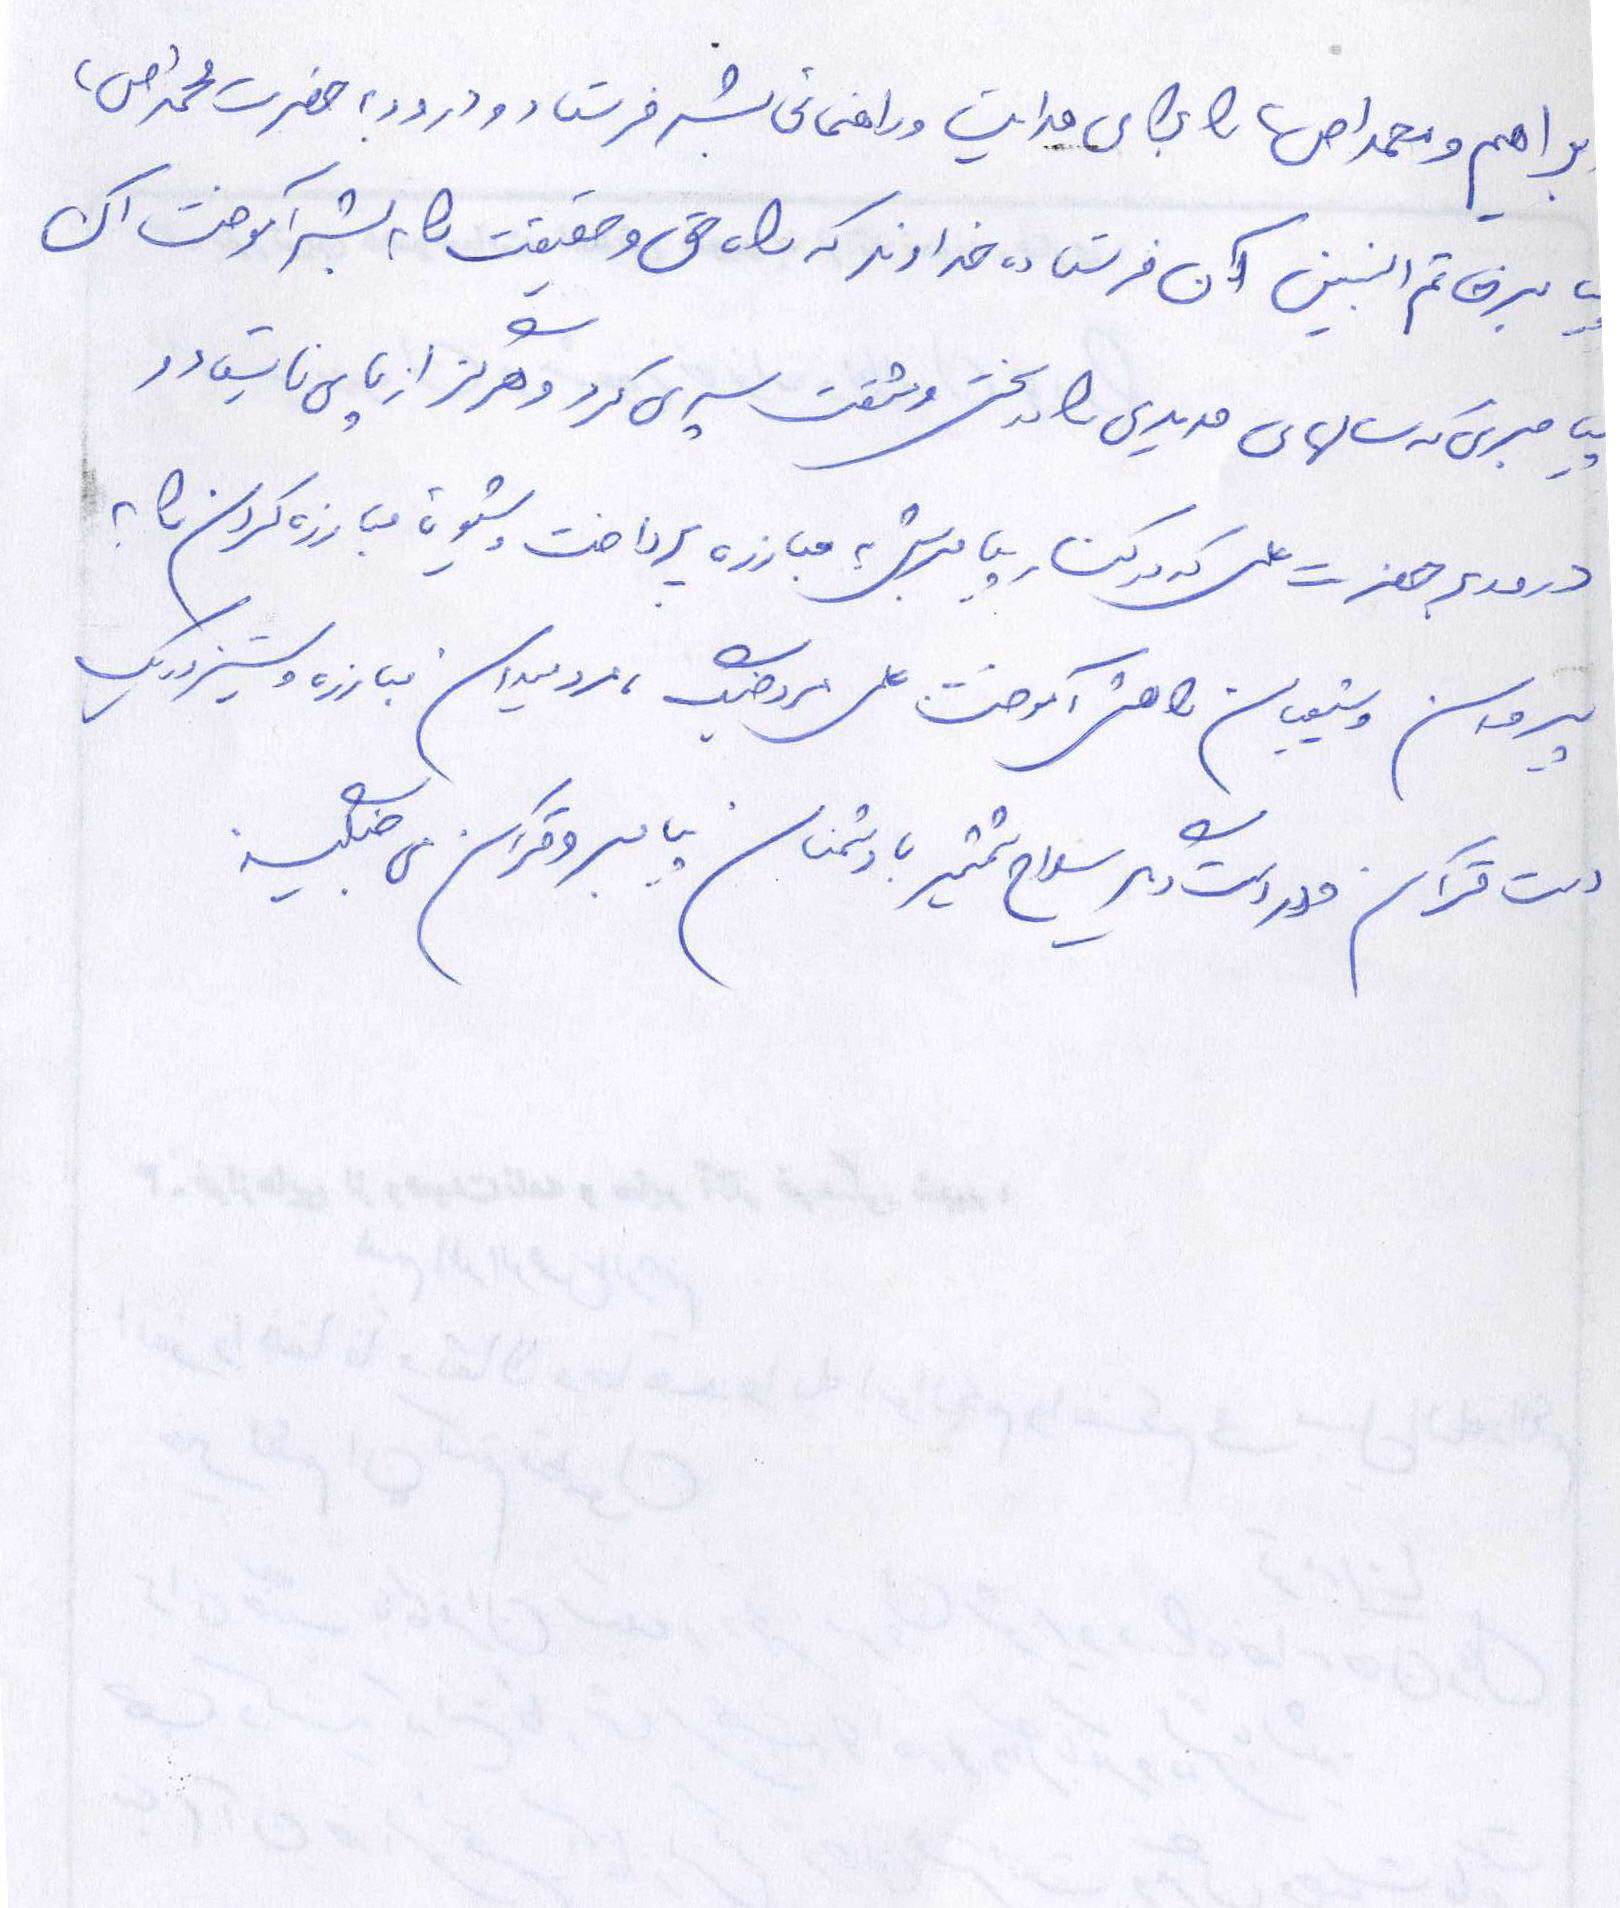 ابراهیم و محمد(ص) را برای هدایت و راهنمائی بشر فرستاد و درود به حضرت محمد(ص)
پیامبر خاتم النبین آن فرستاده خداوند که راه حق و حقیقت را به بشر آموخت آن
پیامبری که سالهای مدیدی را در سختی و مشقت سپری کرد و هرگز از پای نایستاد و
درود بر حضرت علی که در کنار پیامبرش به مبارزه پرداخت و شیوه مبارزه کردن را به
پیروان و شیعیان راهش آموخت علی مرد جنگ ، مرد میدان مبارزه و ستیز در یک
دست قرآن و در دست دیگر سلاح شمشیر با دشمنان پیامبر و قرآن می جنگید.